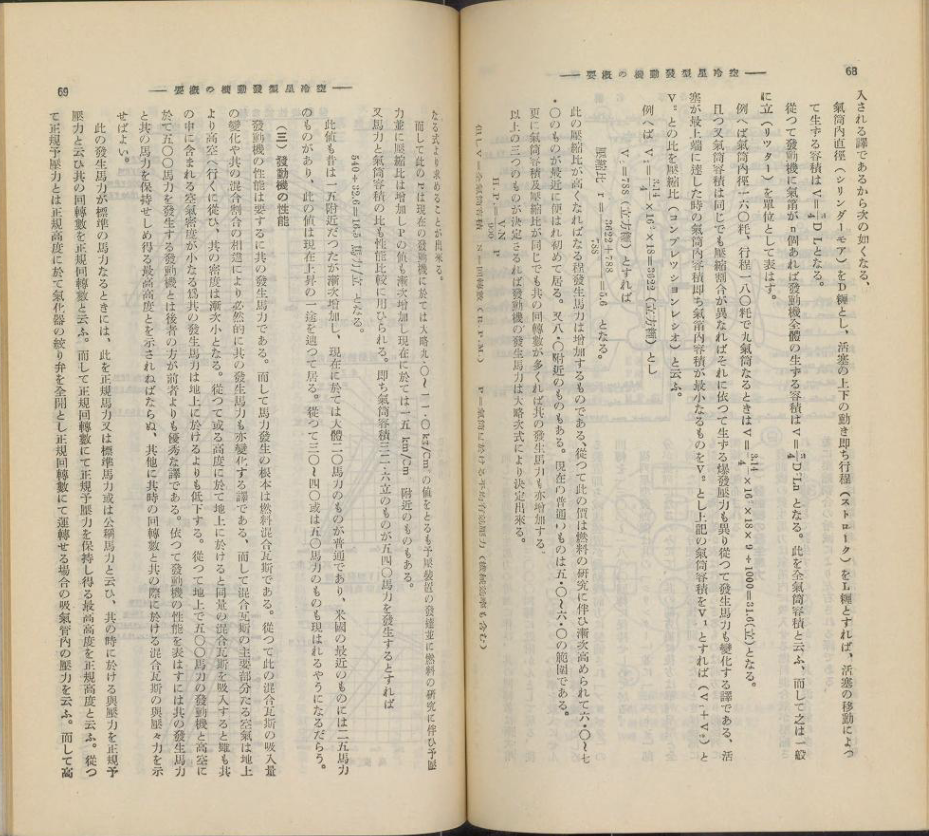 68
空冷星型發動機の概要
入される譯であるから次の如くなる、
氣筒内直徑（シリンダーモア）をD糎とし、活塞の上下の動き即ち行程（ストローク）をL糎とすれば、活塞の移動によつ
て生ずる容積はV=π/4 D²Lとなる。
從つて發動機に氣筒がn個あれば發動機全體の生ずる容積はV=π/4 D²Ln となる。此を全氣筒容積と云ふ、而して之は一般
に立（リツター）を單位として表はす。
例へば氣筒内徑一六〇粍、行程一八〇粍で九氣筒なるときはV=3.14/4×16²×18×9÷1000=31.6(立)となる。
且つ又氣筒容積は同じでも壓縮割合が異なればそれに依つて生ずる爆發壓力も異り從つて發生馬力も變化する譯である、活
塞が最上端に達した時の氣筒内容積即ち氣筒内容積が最小なるものをV₂とし上記の氣筒容積をV₁とすれば（V₁＋V₂）と
V₂との此を壓縮比（コンプレツシヨンレシオ）と云ふ。
例へば V₁=3.14/4×16²×18=3622（立方糎）とし
V₂=788（立方糎）とすれば
壓縮比 r=3622+788/788=5.6 となる。
此の壓縮比が高くなればなる程發生馬力は增加するものである、從つて此の價は燃料の研究に伴ひ漸次高められて六・〇〜七
・〇のものが最近に使はれ初めて居る。又八・〇附近のものもある。現在の普通のものは五・〇〜六・〇の範圍である。
更に氣筒容積及壓縮比が同じでも其の回轉數が多くれば其の發生馬力も亦增加する、
以上の三つのものが決定されば發動機の發生馬力は大略次式により決定出來る。
H.P=VN/900 P
69
空冷星型發動機の概要
なる式より求めることが出來る。
而して此のPは現在の發動機に於ては大略九・〇〜一一・〇
の値をとるも予壓裝置の發達並に燃料の研究に伴ひ予壓
力並に壓縮比は增加しPの値も漸次增加し現在に於ては一五
附近のものもある。
又馬力と氣筒容積の比も性能比較に用ひられる。即ち氣筒容積三二・六立のものが五四〇馬力を發生するとすれば
540÷32.6=16.5 馬力/立 となる。
此値も昔は一五附近だつたが漸次增加し、現在に於ては大體二〇馬力のものが普通であり、米國の最近のものには二五馬力
のものがあり、此の値は現在上昇の一途を辿つて居る。從つて三〇〜四〇或は五〇馬力のものも現はれるやうになるだらう。
（三）發動機の性能
發動機の性能は要するに其の發生馬力である。而して馬力發生の根本は燃料混合瓦斯である。從つて此の混合瓦斯の吸入量
の變化や其の混合割合の相違により必然的に其の發生馬力も亦變化する譯である、而して混合瓦斯の主要部分たる空氣は地上
より高空へ行くに從ひ、其の密度は漸次小となる。從つて或る高度に於て地上に於けると同量の混合瓦斯を吸入すると雖も其
の中に含まれる空氣密度が小なる爲其の發生馬力は地上に於けるよりも低下する。從つて地上で五〇〇馬力の發動機と高空に
於て五〇〇馬力を發生する發動機とは後者の方が前者よりも優秀な譯である。依つて發動機の性能を表はすには其の發生馬力
と其の馬力を保持せしめ得る最高高度とを示さねばならぬ、其他に其時の回轉數と其の際に於ける混合瓦斯の與壓々力を示
せばよい。
此の發生馬力が標準の馬力なるときには、此を正規馬力又は標準馬力或は公稱馬力と云ひ、其の時に於ける與壓力を正規予
壓力と云ひ其の回轉數を正規回轉數と云ふ。而して正規回轉數にて正規予壓力を保持し得る最高高度を正規高度と云ふ。從つ
て正規予壓力とは正規高度に於て氣化器の絞り弁を全開とし正規回轉數にて運轉せる場合の吸氣管内の壓力を云ふ。而して高